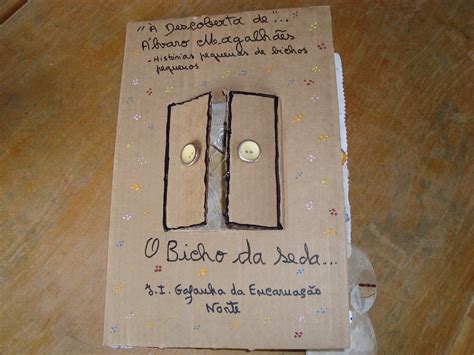 "À Descoberta de"...
Álvaro Magalhães
- Histórias pequenas de bichos
pequenos
O Bicho da seda...
J.I. Gafanha da Encarnação
Norte